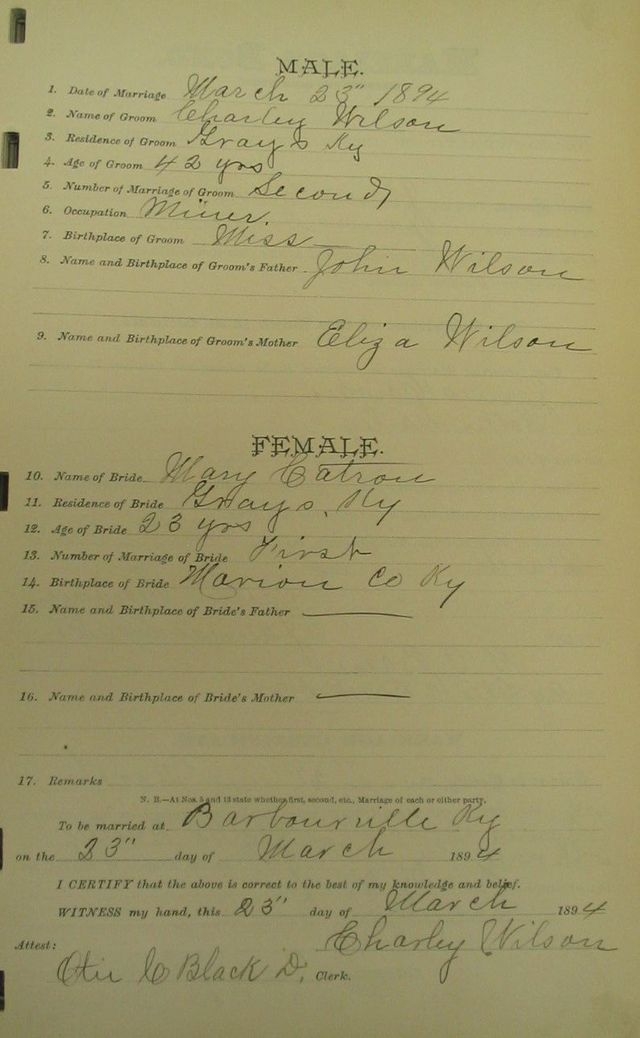 MALE.
1. Date of Marriage March 23" 1894
2. Name of Groom Charley Wilson
3. Residence of Groom Grays Ky
4. Age of Groom 42 yrs
5. Number of Marriage of Groom Second
6. Occupation Miner.
7. Birthplace of Groom Miss
8. Name and Birthplace of Groom's Father John Wilson
9. Name and Birthplace of Groom's Mother Eliza Wilson
FEMALE.
10. Name of Bride Mary Catron
11. Residence of Bride Grays, Ky
12. Age of Bride 23 yrs
13. Number of Marriage of Bride First
14. Birthplace of Bride Marion Co Ky
15. Name and Birthplace of Bride's Father
16. Name and Birthplace of Bride's Mother
17. Remarks
N. B.—At Nos. 5 and 13 state whether first, second, etc., Marriage of each or either party.
To be married at Barbourville Ky
on the 23" day of March 1894
I CERTIFY that the above is correct to the best of my knowledge and belief.
WITNESS my hand, this 23" day of March 1894
Charley Wilson
Attest:
Black D. Clerk.